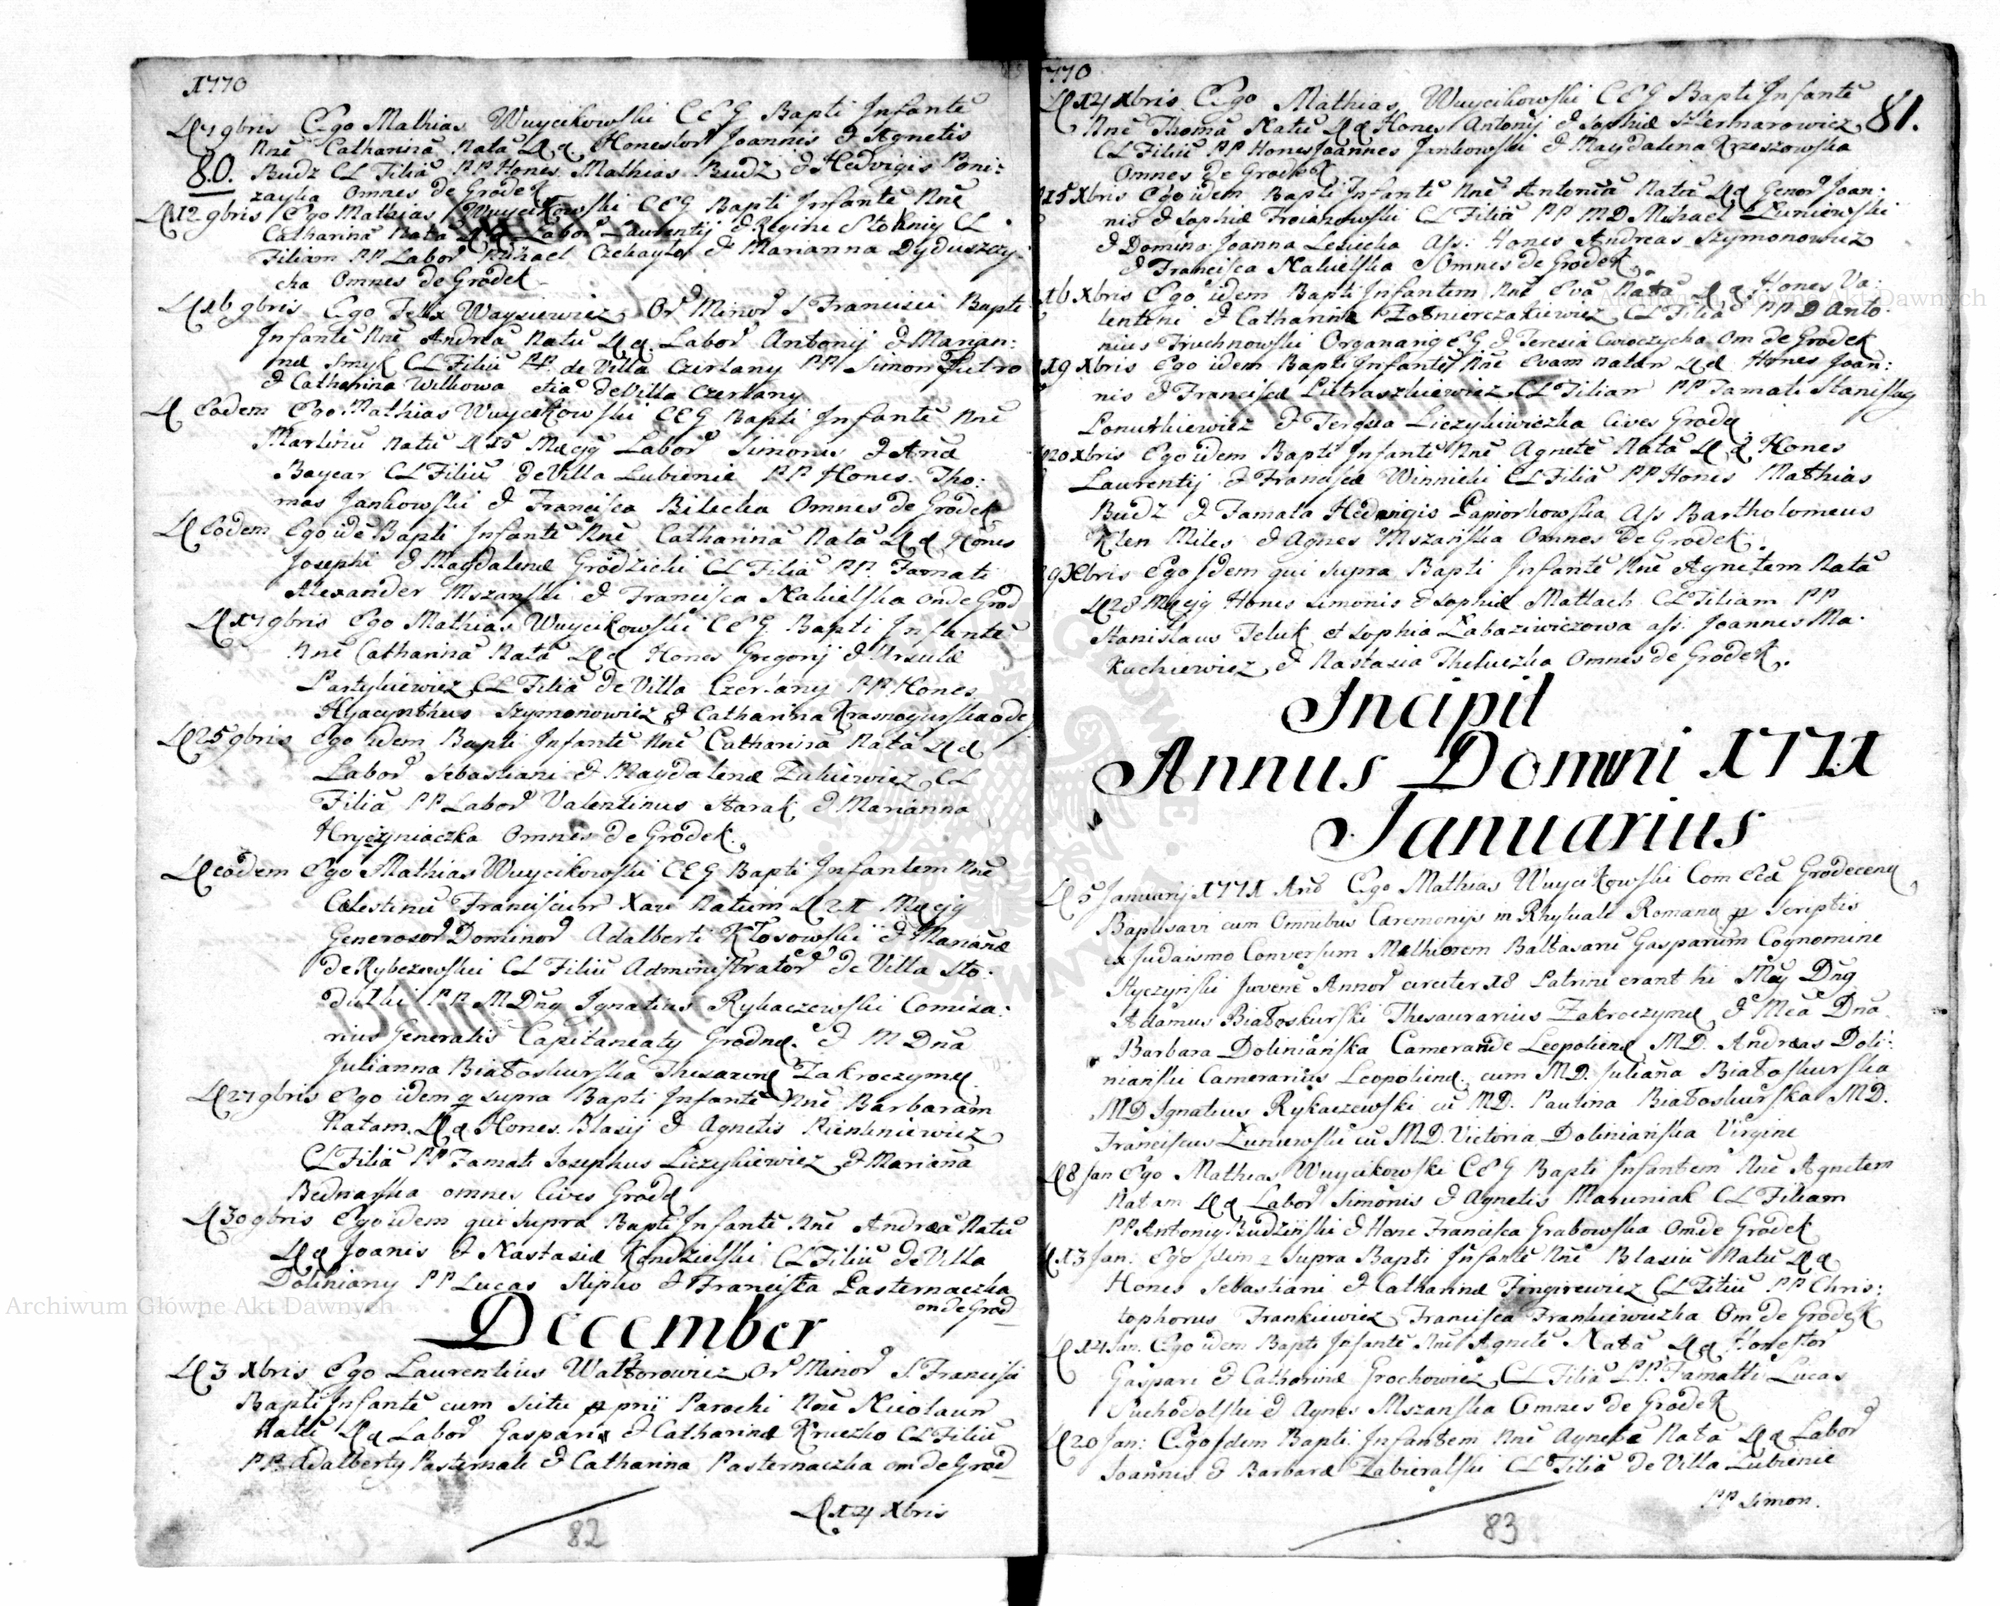 1770
D 7 9bris Ego Mathias Wuycikowski C E G Bapti Infantē
Nnē Catharinā Natā D d Honestor Joannis & Agnetis
80. Budz CL Filiā PP Hones Mathias Budz & Hedvigis Poni:
zayka Omnes de Grodek
D 12 9bris Ego Mathias Wuycikowski C E G Bapti Infantē Nnē
Catharinā Natā D d Labor Laurentij & Regine Stokniy CL
Filiam PP Labor Michael Czekayło & Marianna Dyduszczy:
cha Omnes de Grodek
D 16 9bris Ego Felix Waysiewicz Ord Minor S Francisci Bapti
Infantē Nnē Andreā Natū D d Labor Antonij & Marian:
næ Smyk CL Filiū de Villa Czerlany PP Simon Pietro
& Catharina Wilkowa etiā de Villa Czerlany
D Eodem Ego Mathias Wuycikowski C E G Bapti Infantē Nnē
Martinū Natū D 15 Labor Simonis & Annæ
Baycar CL Filiū de Villa Lubienie PP Hones: Tho:
mas Jankowski & Francisca Bilecka Omnes de Grodek
D Eodem Ego idē Bapti Infantē Nnē Catharinā Natā D d Hones
Josephi & Magdalenæ Grodzicki CL Filiā PP Famati
Alexander Mszanski & Francisca Nakielska On de Grod
D 17 9bris Ego Mathias Wuycikowski C E G Bapti Infantē
Nnē Catharinā Natā D d Hones Gregorij & Ursulæ
Partykiewicz CL Filiā de Villa Czerlany PP Hones
Hyacynthus Szymonowicz & Catharina Krasnogurska
D 25 9bris Ego idem Bapti Infantē Nnē Catharinā Natā D d
Labor Sebastiani & Magdalenæ Zukiewicz CL
Filiā PP Labor Valentinus Starak & Marianna
Hryczyniaczka Omnes de Grodek
D eodem Ego Mathias Wuycikowski C E G Bapti Infantem Nnē
Celestinū Franciscum Xav Natum D 21
Generosor Dominor Adalberti Kłosowski & Mariannæ
de Rybczowski CL Filiū Administrator de Villa Sto:
dułki PP M Dnus Ignatius Rykaczewski Comisa:
rius Generalis Capitaneaty Grodne. & M Dna
Julianna Białoskurska Zakroczyme
D 27 9bris Ego idem q supra Bapti Infantē Nnē Barbaram
Natam D d Hones Blasij & Agnetis Pienkniewicz
CL Filiā PP Famati Josephus Liczykiewicz & Mariāna
Bednarska omnes Cives Grod
D 30 9bris Ego idem qui supra Bapti Infantē Nnē Andreā Natū
D d Joanis & Nastasiæ Kondzielski CL Filiū de Villa
Doliniany PP Lucas Slipko & Franciska Pasternaczka
on de Grod
December
D 3 Xbris Ego Laurentius Waltorowicz Or Minor S. Francisci
Bapti Infantē cum scitu Parochi Nnē Nicolaum
Natū D d Labor Gasparis & Catharinæ Kruczko CL Filiū
PP Adalberty Pasternak & Catharina Pasternaczka om de Grod
D 14 Xbris
82
1770
D 14 Xbris Ego Mathias Wuycikowski C E G Bapti Infantē
81.
Nnē Thomā Natū D d Hones Antonij & Sophiæ Niemarowicz
CL Filiū PP Hones Joannes Jankowski & Magdalena Krzeszowska
Omnes de Grodek
15 Xbris Ego idem Bapti Infantē Nnē Antoniā Natā D d Genor Joan:
nis & Sophiæ Troianowski CL Filiā PP M D Michael Łuniewski
& Domina Joanna Lesicka Ass: Hones Andreas Szymonowicz
& Francisca Nakielska Omnes de Grodek
16 Xbris Ego idem Bapti Infantem Nnē Evā Natā D d Hones Va:
lentini & Catharinæ Zołnierczakiewicz CL Filiā PP D Anto:
nius Truchnowski Organarig E G & Teresia Cwioczycha Om de Grodek
19 Xbris Ego idem Bapti Infantē Nnē Evam Natam D d Hones Joan:
nis & Franciscæ Pitraszkiewicz CL Filiam PP Famati Stanislag
Ponurkiewicz & Teresia Liczykiewiczka Cives Grod
20 Xbris Ego idem Bapti Infantē Nnē Agnetē Natā D d Hones
Laurentij & Franciscæ Winnicki CL Filiā PP Hones Mathias
Budz & Famata Hedwigis Papiorkowska Ass Bartholomeus
Klen Miles & Agnes Mszańska Omnes de Grodek.
Xbris Ego Idem qui supra Bapti Infantē Nnē Agnetem Natā
D 28 Hones Simonis & Sophiæ Matlach CL Filiam PP
Stanislaus Teluk et Sophia Łabaziwiczowa ass: Joannes Ma:
kuchiewicz & Nastazia Theluczka Omnes de Grodek.
Incipit
Annus Domini 1771
Januarius
D 5 Januarij 1771 Ann Ego Mathias Wuycikowski Com Ecclæ Grodecens
Baptisavi cum Omnibus Caremonijs in Rhytuale Romano Scriptis
ex Judaismo Conversum Melhiorem Baltasarū Gasparum Cognomine
Styczyński Juvenē Annor circiter 18 Patrini erant hi Mag Dng
Adamus Białoskurski Thesaurarius Zakroczyme & Mcā Dna
Barbara Doliniańska Camerande Leopoliens M D. Andreas Doli:
niański Camerarius Leopoliens. cum M D. Juliāna Białoskurska
M D Ignatius Rykaczewski cū M D. Paulina Białoskurska M D.
Franciscus Łuniewski cū M D. Victoria Doliniańska Virgine
D 8 Jan Ego Mathias Wuycikowski C E G Bapti Infantem Nnē Agnetem
Natam D d Labor Simonis & Agnetis Maruniak CL Filiam
PP Antonius Budziński & Hone Francisca Grabowska Om de Grodek
D 13 Jan: Ego Idem q supra Bapti Infantē Nnē Blasiū Natū D d
Hones Sebastiani & Catharinæ Fingirewicz CL Filiū PP Chris:
tophorus Frankiewicz Francisca Frankiewiczka Om de Grodek
D 14 Jan. Ego idem Bapti Infantē Nnē Agnetē Natā D d Honestor
Gaspari & Catharinæ Grochowicz CL Filiā PP. Famatti Lucas
Suchodolski & Agnes Mszanska Omnes de Grodek
D 20 Jan: Ego Idem Bapti Infantem Nnē Agnetē Natā D d Labor
Joannis & Barbaræ Zabieralski CL Filiā de Villa Lubienie
PP Simon.
83
Archiwum Główne Akt Dawnych
Archiwum Główne Akt Dawnych